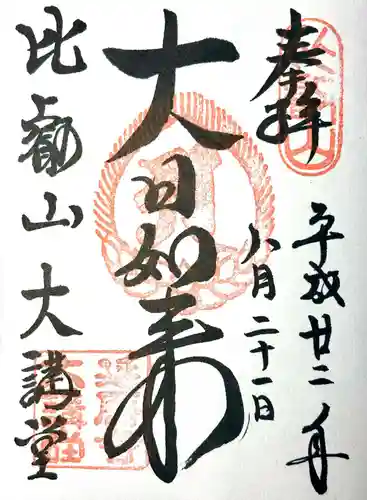 奉拝
平成廿二年
八月二十一日
大日如来
比叡山大講堂